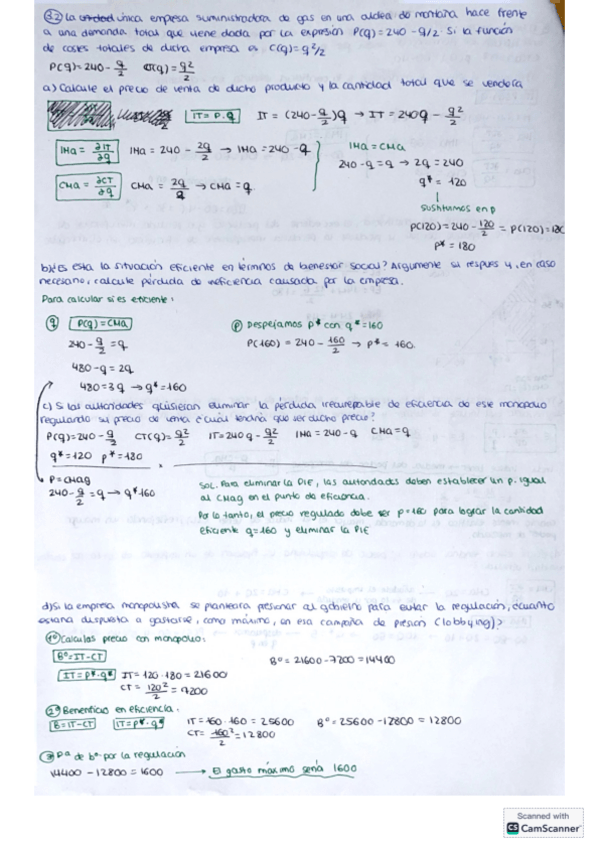 3.2 La unidad única empresa suministradora de gas en una aldea de montaña hace frente
a una demanda total que viene dada por la expresión P(q)=240-q/2. Si la función
de costes totales de dicha empresa es C(q)=q²/2
P(q)=240-q/2 CT(q)=q²/2
a) Calcule el precio de venta de dicho producto y la cantidad total que se venderá
IT = P·q IT = (240-q/2)q → IT = 240q - q²/2
IMa = ∂IT/∂q IMa = 240 - 2q/2 → IMa = 240-q IMa = CMa
240-q=q → 2q=240
CMa = ∂CT/∂q CMa = 2q/2 → CMa = q. q* = 120
sustituimos en p
P(120)=240-120/2 = P(120)=180
P* = 180
b) ¿Es esta la situación eficiente en términos de bienestar social? Argumente su respues y, en caso
necesario, calcule pérdida de ineficiencia causada por la empresa.
Para calcular si es eficiente:
q P(q)=CMa P Despejamos p* con q*=160
240-q/2=q P(160) = 240-160/2 → P* = 160.
480-q=2q
480=3q → q*=160
c) Si las autoridades quisieran eliminar la pérdida irrecuperable de eficiencia de este monopolio
regulando su precio de venta ¿cuál tendría que ser dicho precio?
P(q)=240-q/2 CT(q)=q²/2 IT=240q-q²/2 IMa=240-q CMa=q
q*=120 p*=180
P=CMag
240-q/2=q → q*160
SOL. Para eliminar la PIE, las autoridades deben establecer un p. igual
al CMag en el punto de eficiencia.
Por lo tanto, el precio regulado debe ser p=160 para lograr la cantidad
eficiente q=160 y eliminar la PIE
d) Si la empresa monopolista se planteara presionar al gobierno para evitar la regulación, ¿cuánto
estaría dispuesta a gastarse, como máximo, en esa campaña de presión (lobbying)?
1º Calculas precio con monopolio:
Bº=IT-CT Bº = 21600-7200=14400
IT=p*·q* IT=120·180=21600
CT=120²/2=7200
2º Beneficios en eficiencia.
B=IT-CT IT=p*·q* IT=160·160=25600 Bº=25600-12800=12800
CT=160²/2=12800
3 Pª de bº por la regulación
14400-12800=1600 → El gasto máximo sería 1600
Scanned with
CS CamScanner